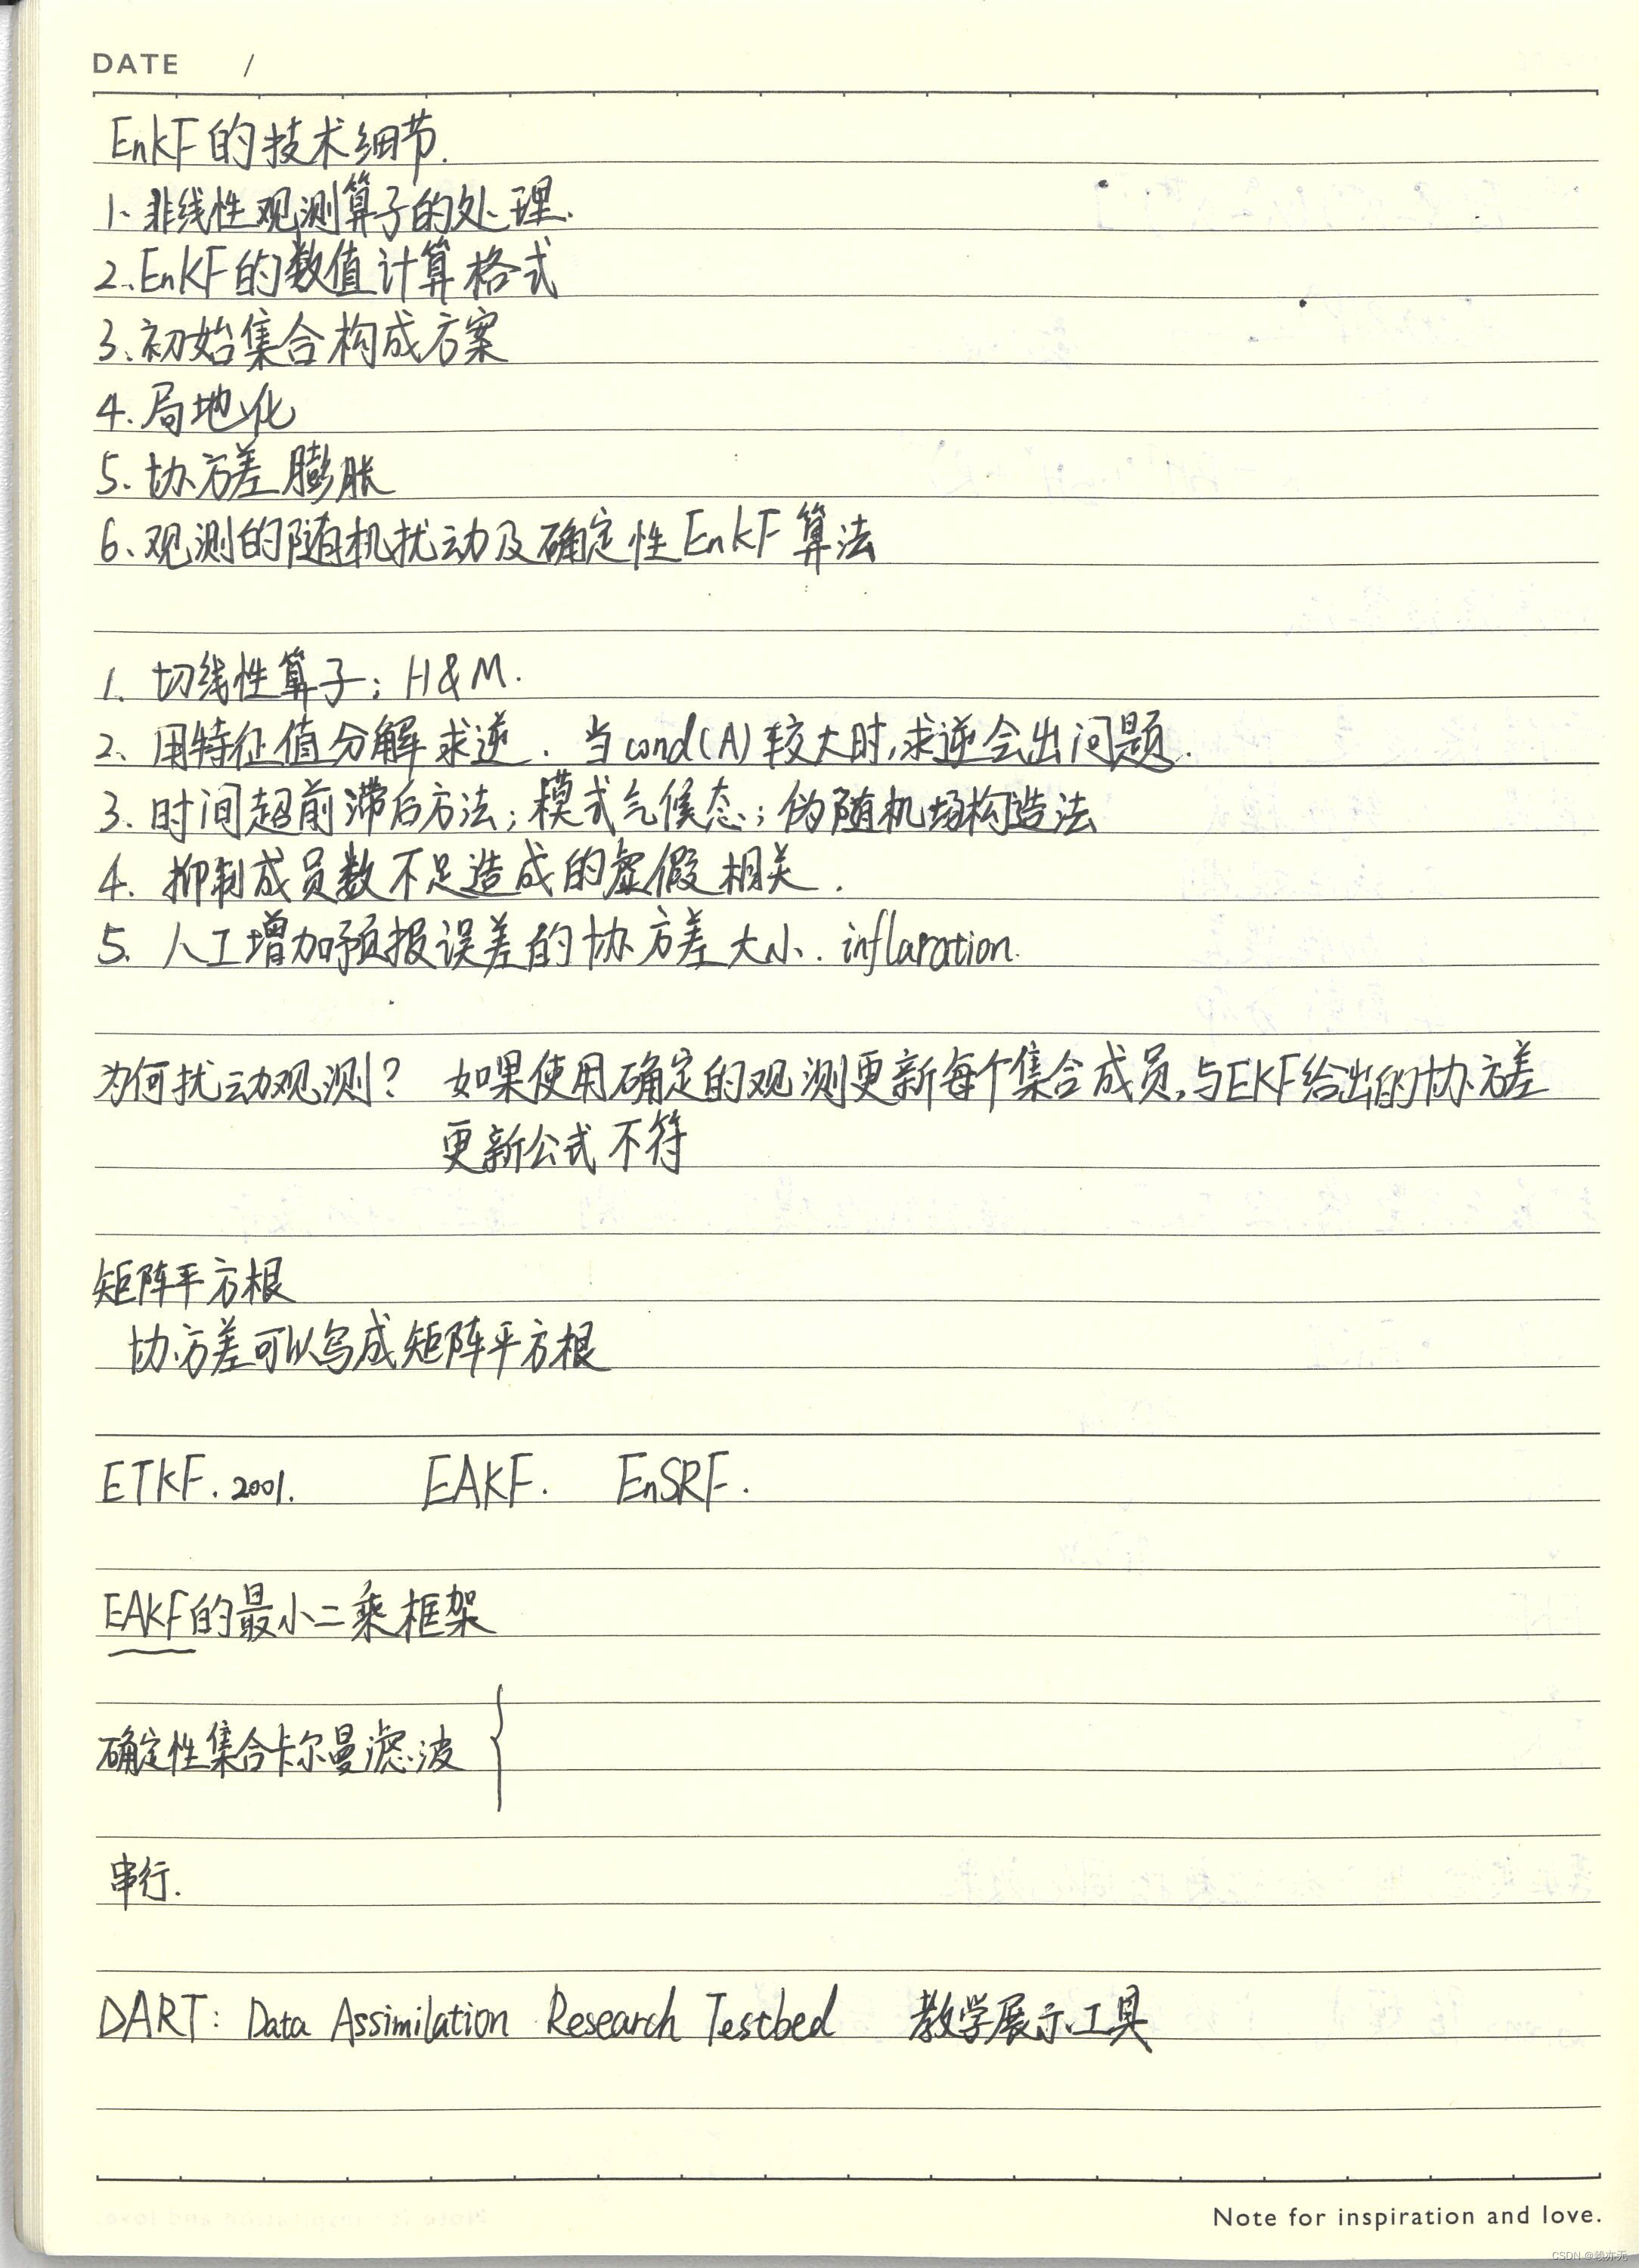 DATE /
EnKF的技术细节.
1、非线性观测算子的处理.
2、EnKF的数值计算格式
3、初始集合构成方案
4.局地化
5.协方差膨胀
6.观测的随机扰动及确定性EnKF算法
1、切线性算子；H&M.
2、用特征值分解求逆. 当cond(A)较大时,求逆会出问题.
3.时间超前滞后方法；模式气候态；伪随机场构造法
4.抑制成员数不足造成的虚假相关.
5.人工增加预报误差的协方差大小. inflaration.
为何扰动观测? 如果使用确定的观测更新每个集合成员,与EKF给出的协方差
更新公式不符
矩阵平方根
协方差可以写成矩阵平方根
ETKF. 2001. EAKF. EnSRF.
EAKF的最小二乘框架
确定性集合卡尔曼滤波 {
串行.
DART: Data Assimilation Research Testbed 教学展示工具
Note for inspiration and love.
CSDN @赖亦无